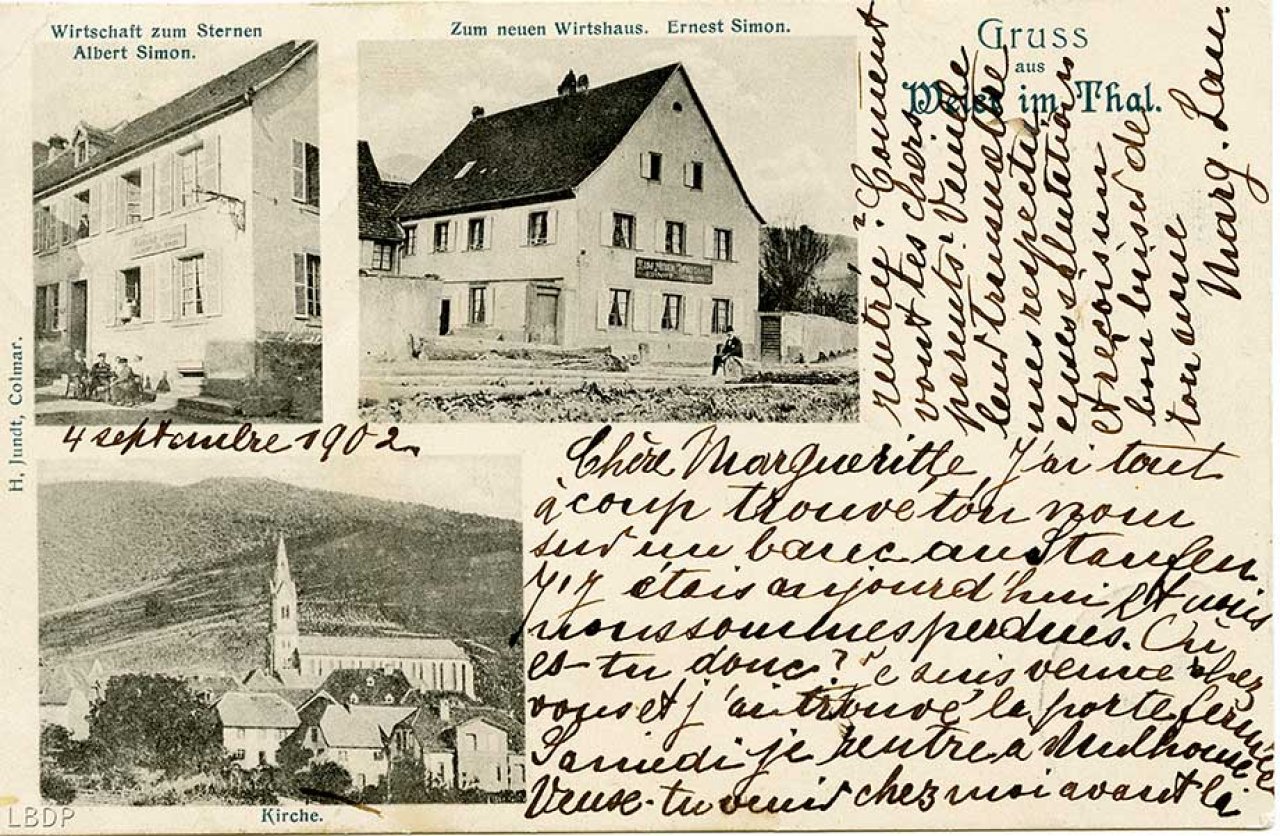 Wirtschaft zum Sternen
Albert Simon.
Zum neuen Wirtshaus. Ernest Simon.
Gruss
aus
Weier im Thal.
ZUM NEUEN WIRTSHAUS
H. Jundt, Colmar.
4 septembre 1902.
Chère Margueritte, J'ai tout
à coup trouvé ton nom
sur un banc au Staufen
J'y étais aujourd'hui et nous
nous sommes perdues. Où
es-tu donc? Je suis venue chez
vous et j'ai trouvé la porte fermée
Samedi je rentre à Mulhouse
Veux-tu venir chez moi avant la
rentrée? Coment
vont tes chers
parents? Veuille
leur transmettre
mes respectu
euses salutations
et reçois un
bon baiser de
ton amie
Marg. Lau.
Kirche.
LBDP